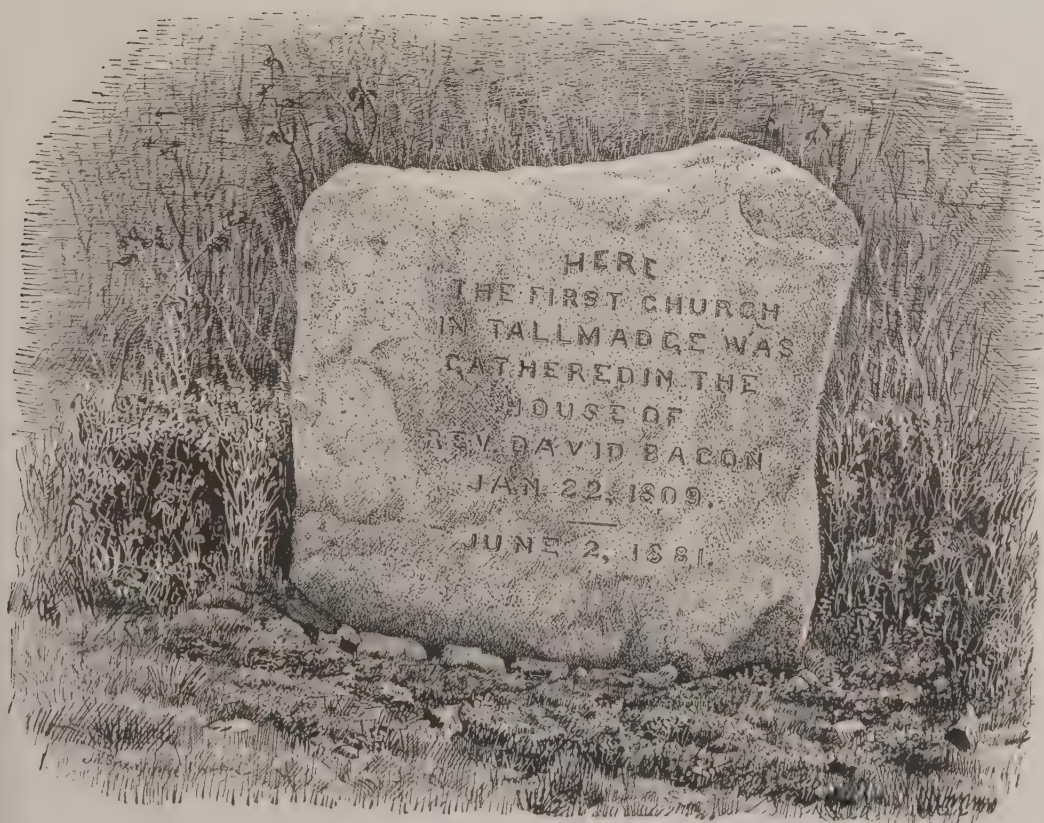 HERE
THE FIRST CHURCH
IN TALLMADGE WAS
GATHEREDIN THE
HOUSE OF
REV. DAVID BACON
JAN. 22, 1809.
JUNE 2, 1881.